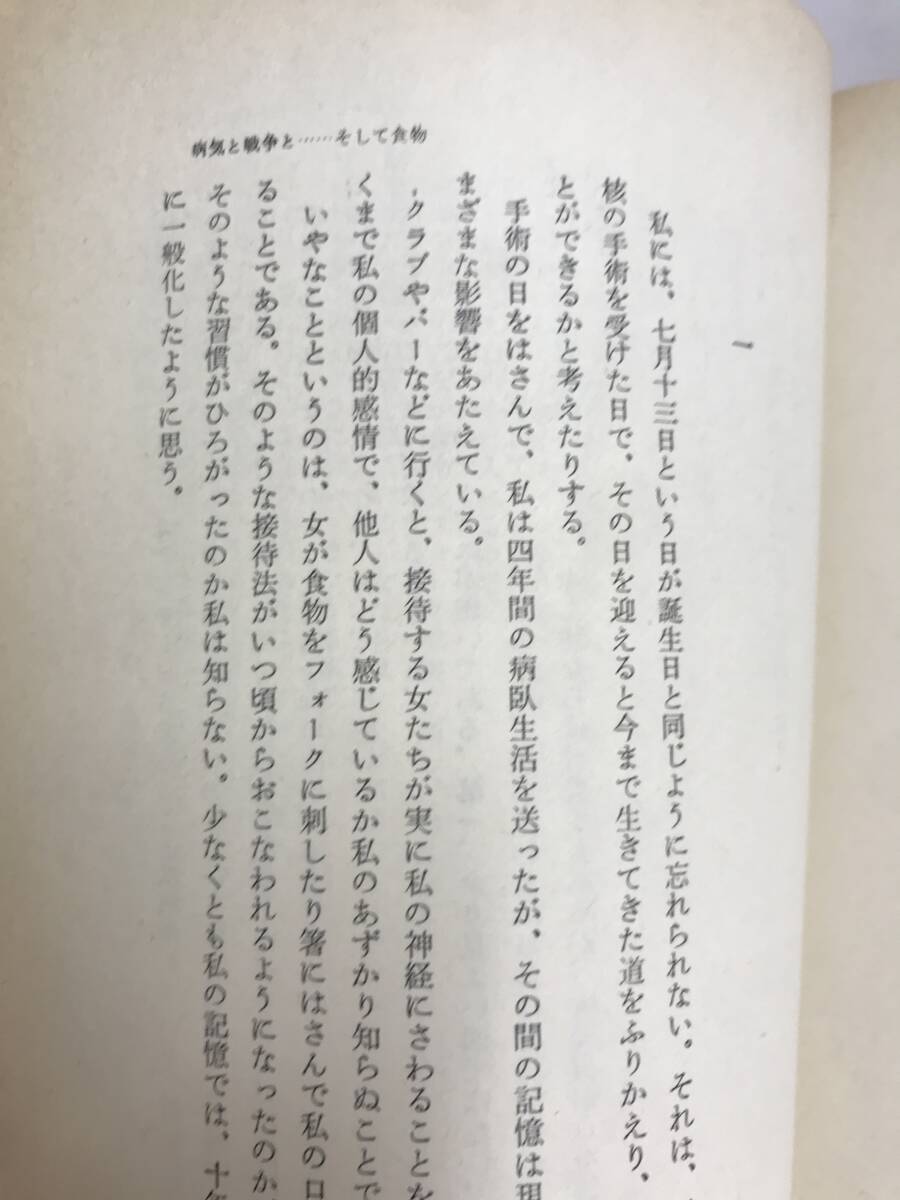 病気と戦争と……そして食物
一
私には、七月十三日という日が誕生日と同じように忘れられない。それは、
核の手術を受けた日で、その日を迎えると今まで生きてきた道をふりかえり、
とができるかと考えたりする。
手術の日をはさんで、私は四年間の病臥生活を送ったが、その間の記憶は現
まざまな影響をあたえている。
クラブやバーなどに行くと、接待する女たちが実に私の神経にさわることを
くまで私の個人的感情で、他人はどう感じているか私のあずかり知らぬことで
いやなことというのは、女が食物をフォークに刺したり箸にはさんで私の口
ることである。そのような接待法がいつ頃からおこなわれるようになったのか
そのような習慣がひろがったのか私は知らない。少なくとも私の記憶では、十年
に一般化したように思う。